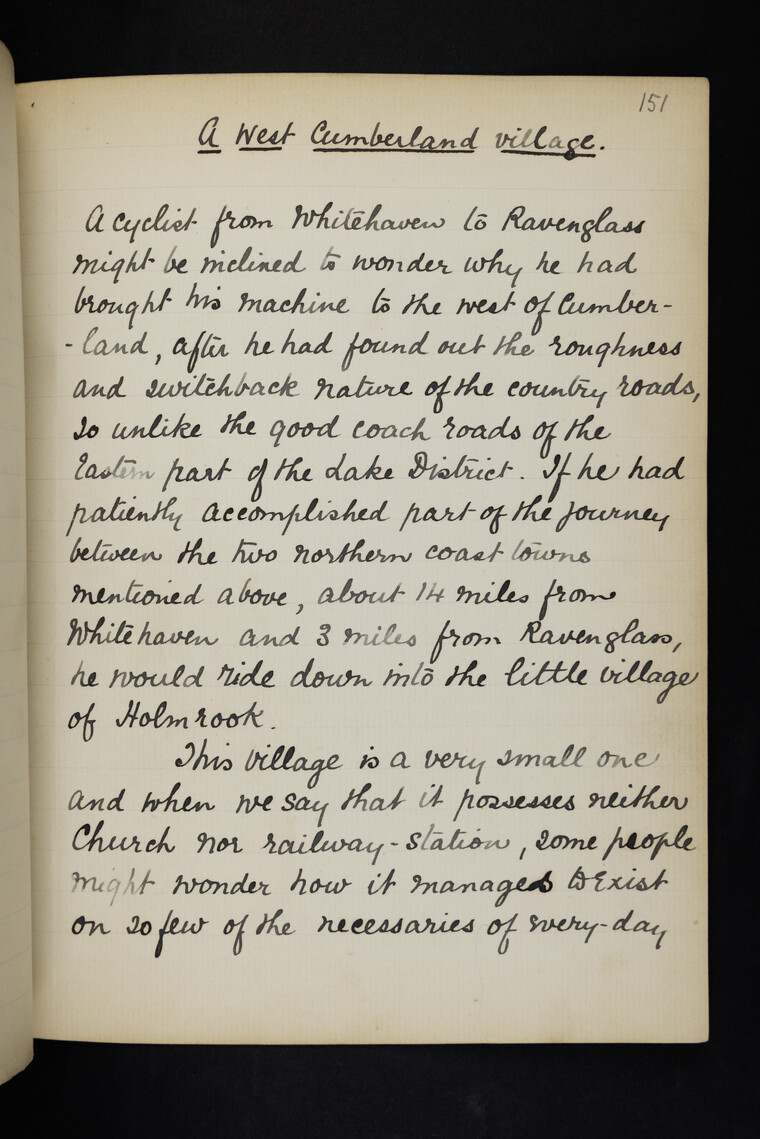 151
A West Cumberland village.
A cyclist from Whitehaven to Ravenglass
might be inclined to wonder why he had
brought his machine to the west of Cumber-
-land, after he had found out the roughness
and switchback nature of the country roads,
so unlike the good coach roads of the
Eastern part of the Lake District. If he had
patiently accomplished part of the journey
between the two northern coast towns
mentioned above, about 14 miles from
Whitehaven and 3 miles from Ravenglass,
he would ride down into the little village
of Holmrook.
This village is a very small one
and when we say that it possesses neither
Church nor railway-station, some people
might wonder how it manages to exist
on so few of the necessaries of every-day